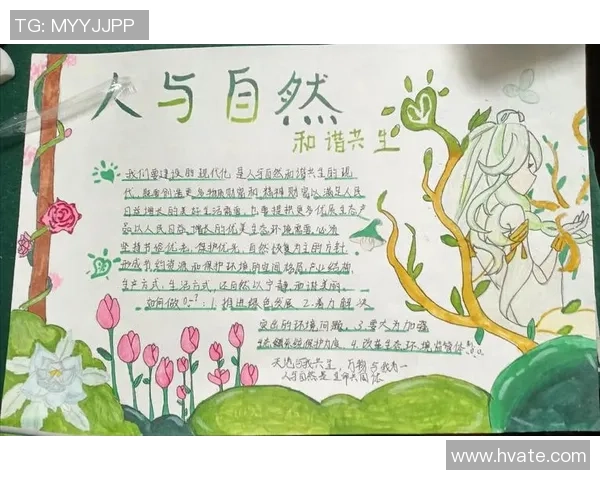 TG: MYYJJPP
人与自然
和谐共生
我们要建设的现代化是人与自然和谐共生的现
代化,既要创造更多物质财富和精神财富以满足人民
日益增长的美好生活需要,也要提供更多优质生态产
品以人民日益增长的优美生态环境需要,必须
坚持节约优先、保护优先、自然恢复为主的方针,
形成节约资源和保护环境的空间格局、产业结构、
生产方式、生活方式,还自然以宁静、和谐、美丽。
如何做 : 1. 推进绿色发展 2. 着力解决
突出的环境问题、3. 要大力加强
生态系统保护力度 4. 改革生态环境监管体
天地与我共生,万物与我为一
人与自然是生命共同体
www.hvate.com